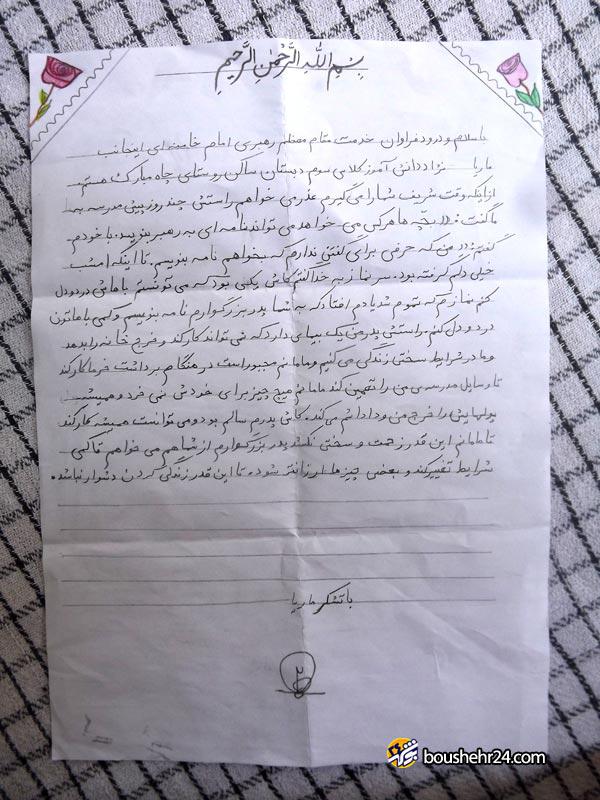 بِسمِ اللهِ الرَّحمٰنِ الرَّحیمِ
باسلام و درود فراوان خدمت مقام معظم رهبری امام خامنه ای اینجانب
ماریا نژاد دانش آموز کلاس سوم دبستان ساکن روستای چاه مبارک هستم.
از اینکه وقت شریف شما را می گیرم عذر می خواهم راستش چند روز پیش مدرسه بما
ما گفت: (( بچّه ها هرکس می خواهد می تواند نامه ای به رهبر بنویسد. با خودم
گفتم: (( من که حرفی برای گفتن ندارم که بخواهم نامه بنویسم تا اینکه امشب
خیلی دلم گرفته بود. سر نماز به خدا گفتم کاش یکی بود که می تونستم باهاش درد و دل
کنم نمازم که تموم شد یادم افتاد که به شما پدر بزرگوارم نامه بنویسم و کمی باهاتون
درد و دل کنم. راستش پدر من یک بیماری دارد که نمی تواند کار کند و خرج خانه را بدهد
و ما در شرایط سختی زندگی می کنیم و مامانم مجبور است در هنگام برداشت خرما کار کند
تا وسایل مدرسه ی من را تامین کند مامانم هیچ چیز برای خودش نمی خرد و همیشه
پولهایش را خرج من و داداشم می کند. کاش پدرم سالم بود و می توانست همیشه کار کند
تا مامانم این قدر زحمت و سختی نکشد پدر بزرگوارم از شما هم می خواهم تا کمی
شرایط تغییر کند و بعضی چیزها ارزانتر شود تا این قدر زندگی کردن دشوار نباشد.
با تشکر ماریا
boushehr24.com